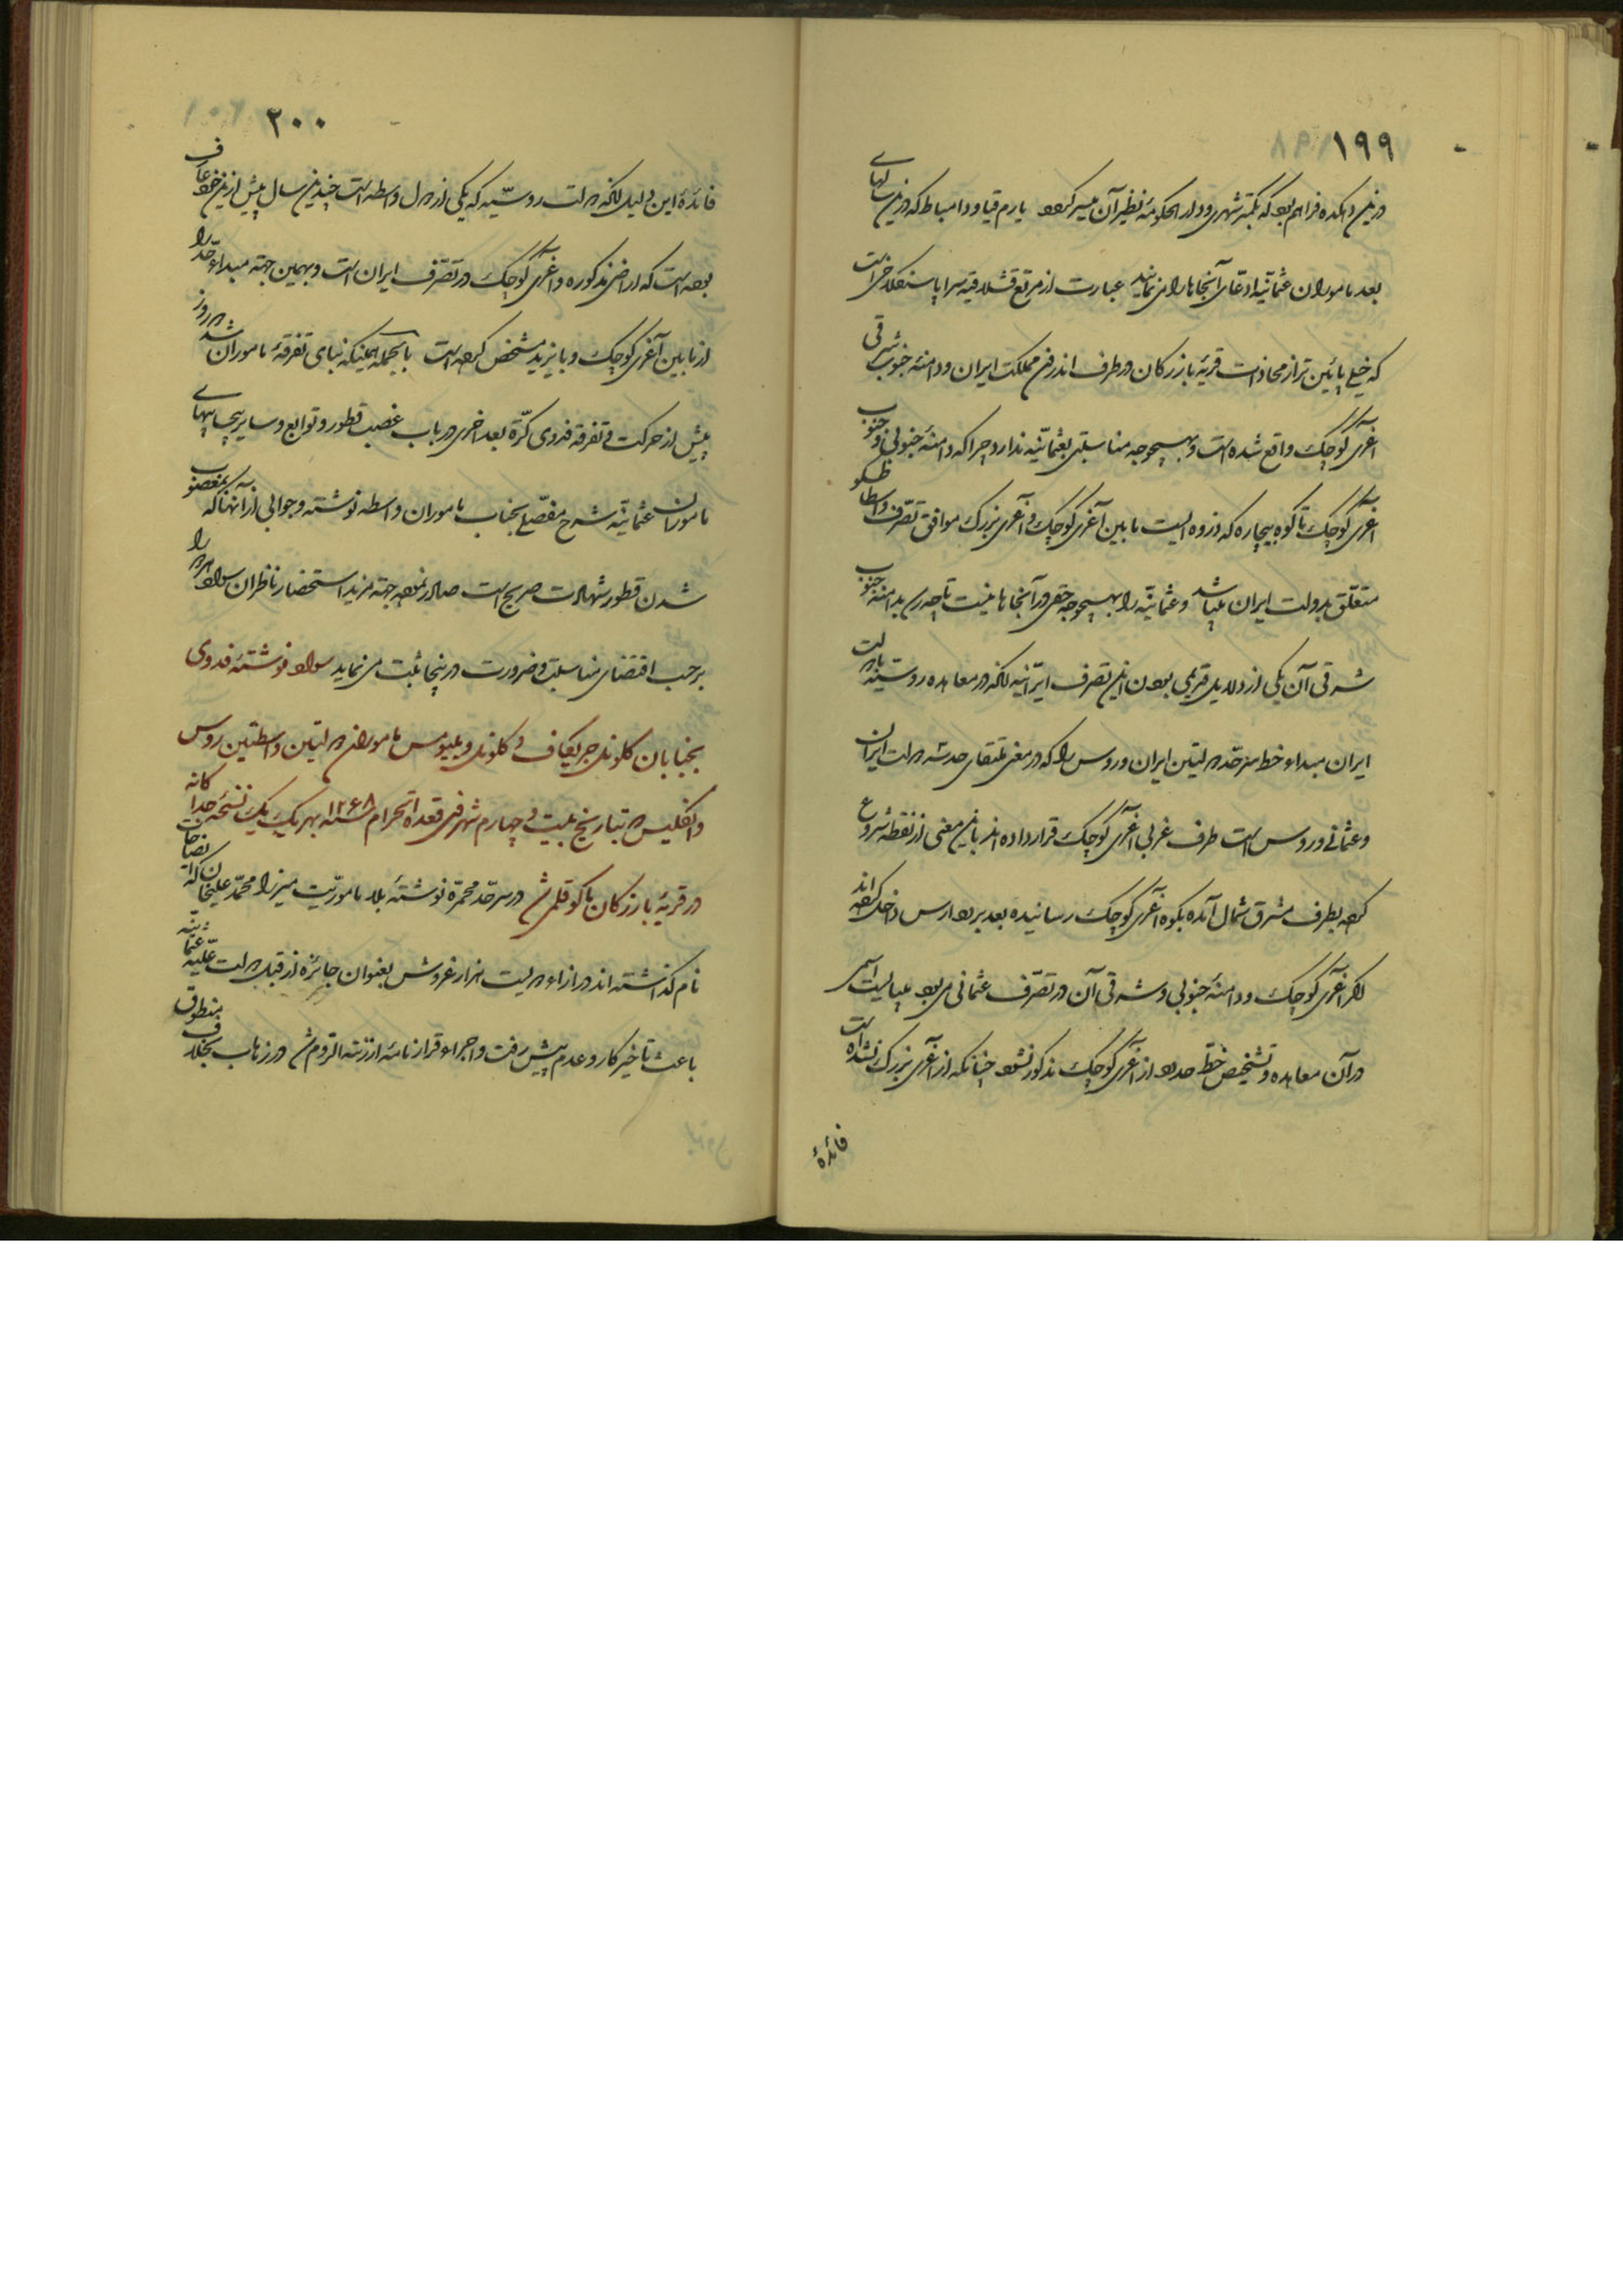 ۱۹۹
درین دهکده فراهم بود که بکمتر شهری و دار الحکومهٔ نظیر آن میسر گردد یارم قیا و دامباط که درین سالهای
بعد ماموران عثمانیه ادعای آنجاها را می‌نمایند عبارت از مرتع قشلاقیه سراپا سنگلاخی است
که خیلی پائین‌تر از محاذات قریهٔ بازرگان در طرف اندرون مملکت ایران و دامنهٔ جنوب شرقی
آغری کوچک واقع شده است و بهیچوجه مناسبتی بعثمانیه ندارد چرا که دامنهٔ جنوبی و جنوب
آغری کوچک تا کوه بیچاره که ذروه ایست مابین آغری کوچک و آغری بزرک موافق تصرف و اسطا
متعلق بدولت ایران میباشد و عثمانیه را بهیچوجه حقی در آنجاها نیست تا چه رسد بدامنهٔ جنوب
شرقی آن یکی از دلایل قدیمی بودن این تصرف ایرانیه آنکه در معاهده روسیه با دولت
ایران مبداء خط سرحد دولتین ایران و روس را که در معنی ملتقای حد سه دولت ایران
و عثمانی و روس است طرف غربی آغری کوچک قرار داده‌اند باین معنی از نقطهٔ شروع
کرده بطرف مشرق شمال آمده بکوه آغری کوچک رسانیده بعد برود ارس داخل کرده‌اند
اگر آغری کوچک و دامنهٔ جنوبی و شرقی آن در تصرف عثمانی می‌بود میبایست اسمی
در آن معاهده و تشخیص خط حدود از آغری کوچک مذکور نشود چنانکه از آغری بزرک نشده است
فائدهٔ
۲۰۰
فائدهٔ این دلیل آنکه دولت روسیه که یکی از دول واسطه است چندین سال پیش ازین خود عارف
بوده است که اراضی مذکوره و آغری کوچک در تصرف ایران است و بهمین جهته مبداء حد را
از مابین آغری کوچک و بایزید مشخص کرده است بالجمله همینکه بنای تفرقهٔ ماموران شد دو روز
پیش از حرکت و تفرقه فدوی کرّة بعد اخری در باب غصب قطور و توابع و سایر بیحسابیهای
مامورین عثمانیه شرح مفصلی بجناب ماموران واسطه نوشته و جوابی از آنها که بمغصوب
شدن قطور شهادت صریح است صادر نموده جهته مزید استحضار ناظران سواد هر دو را
برحسب اقتضای مناسبت و ضرورت درینجا ثبت می‌نماید سواد نوشتهٔ فدوی
بجنابان کلونل چریکاف و کلونل ویلیومس ماموران دولتین واسطتین روس
و انگلیس بتاریخ بیست و چهارم شهر ذی قعدة الحرام سنه ۱۲۶۸ بهر یک یک نسخهٔ جداگانه
در قریهٔ بازرگان ماکو قلمی شد در سرحد محمره نوشتهٔ بلا ماموریت میرزا محمد علیخان که
نام گذاشته‌اند در ازاء دویست هزار غروش بعنوان جائزه از قبل دولت علیه عثمانیه
باعث تاخیر کار و عدم پیش رفت و اجراء قرارنامهٔ ارزنة الروم شد در زهاب بخلاف منطوق